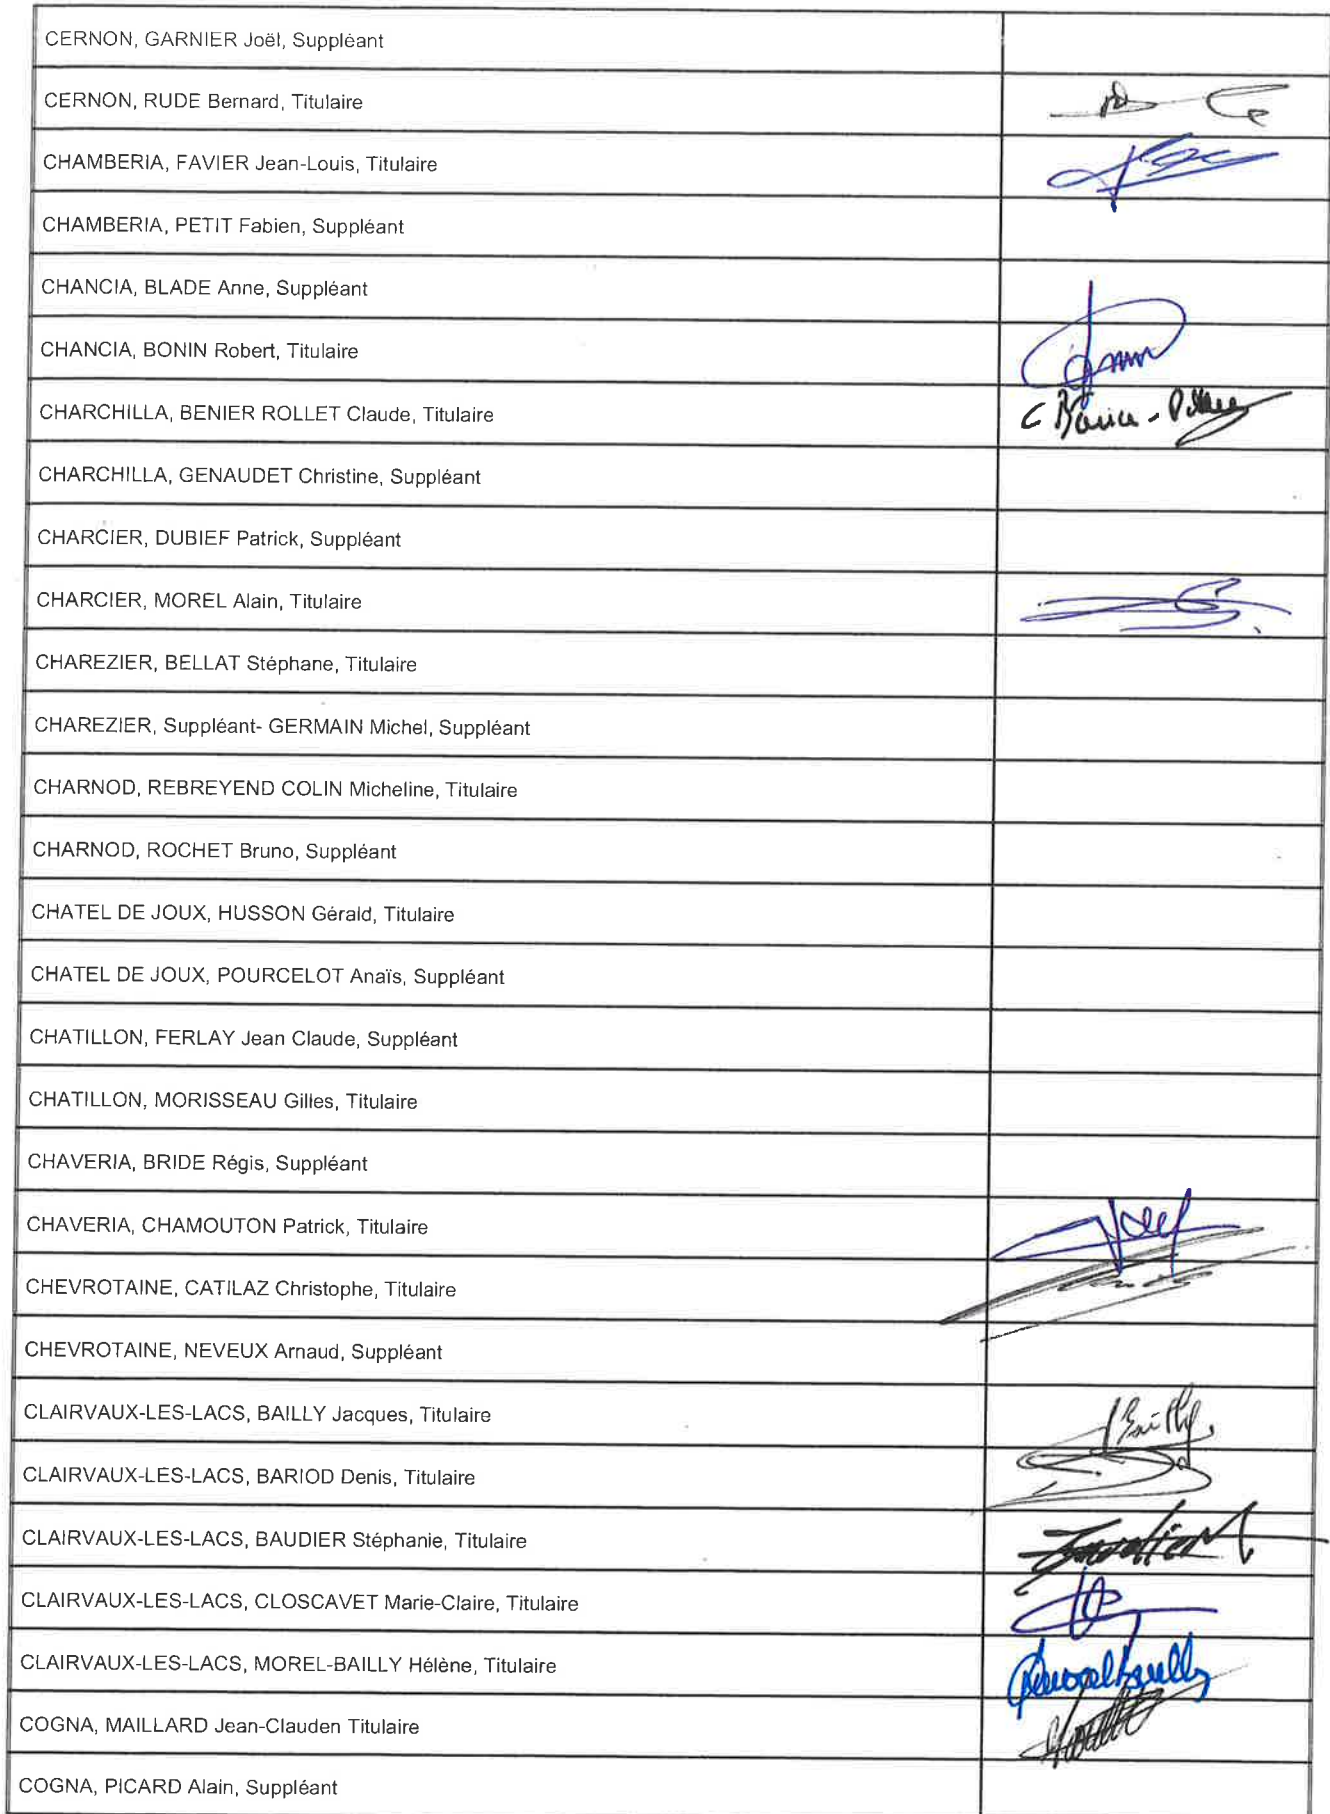 CERNON, GARNIER Joël, Suppléant
CERNON, RUDE Bernard, Titulaire
CHAMBERIA, FAVIER Jean-Louis, Titulaire
CHAMBERIA, PETIT Fabien, Suppléant
CHANCIA, BLADE Anne, Suppléant
CHANCIA, BONIN Robert, Titulaire
CHARCHILLA, BENIER ROLLET Claude, Titulaire
CHARCHILLA, GENAUDET Christine, Suppléant
CHARCIER, DUBIEF Patrick, Suppléant
CHARCIER, MOREL Alain, Titulaire
CHAREZIER, BELLAT Stéphane, Titulaire
CHAREZIER, Suppléant- GERMAIN Michel, Suppléant
CHARNOD, REBREYEND COLIN Micheline, Titulaire
CHARNOD, ROCHET Bruno, Suppléant
CHATEL DE JOUX, HUSSON Gérald, Titulaire
CHATEL DE JOUX, POURCELOT Anaïs, Suppléant
CHATILLON, FERLAY Jean Claude, Suppléant
CHATILLON, MORISSEAU Gilles, Titulaire
CHAVERIA, BRIDE Régis, Suppléant
CHAVERIA, CHAMOUTON Patrick, Titulaire
CHEVROTAINE, CATILAZ Christophe, Titulaire
CHEVROTAINE, NEVEUX Arnaud, Suppléant
CLAIRVAUX-LES-LACS, BAILLY Jacques, Titulaire
CLAIRVAUX-LES-LACS, BARIOD Denis, Titulaire
CLAIRVAUX-LES-LACS, BAUDIER Stéphanie, Titulaire
CLAIRVAUX-LES-LACS, CLOSCAVET Marie-Claire, Titulaire
CLAIRVAUX-LES-LACS, MOREL-BAILLY Hélène, Titulaire
COGNA, MAILLARD Jean-Clauden Titulaire
COGNA, PICARD Alain, Suppléant